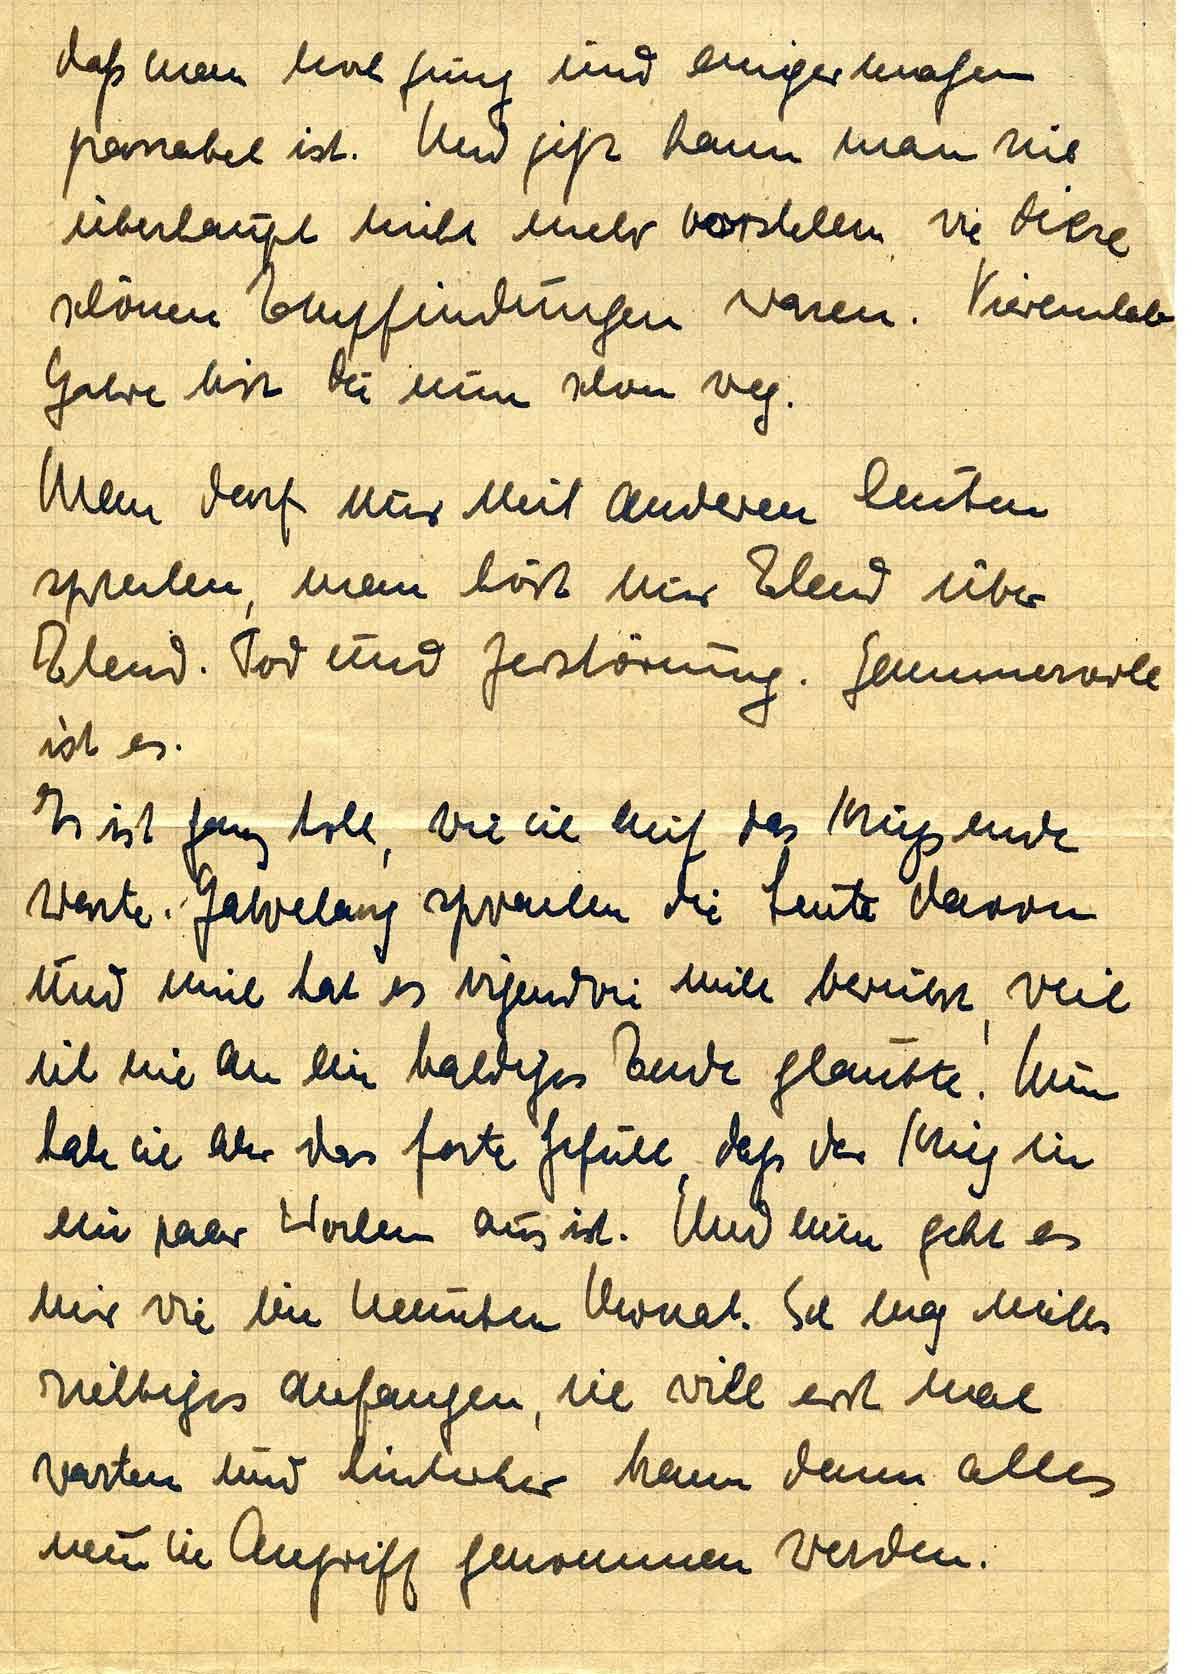 daß man noch jung und einigermaßen
passabel ist. Und jetzt kann man sich
überhaupt nicht mehr vorstellen, wie diese
schönen Empfindungen waren. Viereinhalb
Jahre bist du nun schon weg.
Man darf nur mit anderen Leuten
sprechen, man hört nur Elend über
Elend. Tod und Zerstörung. Jammervoll
ist es.
Es ist ganz toll, wie ich auf das Kriegsende
warte. Jahrelang sprachen die Leute davon
und mich hat es irgendwie nicht berührt, weil
ich nie an ein baldiges Ende glaubte. Nun
habe ich aber das feste Gefühl, daß der Krieg in
ein paar Wochen aus ist. Und nun geht es
mir wie im neunten Monat. Ich mag nichts
richtiges anfangen, ich will erst mal
warten und hinterher kann dann alles
neu in Angriff genommen werden.